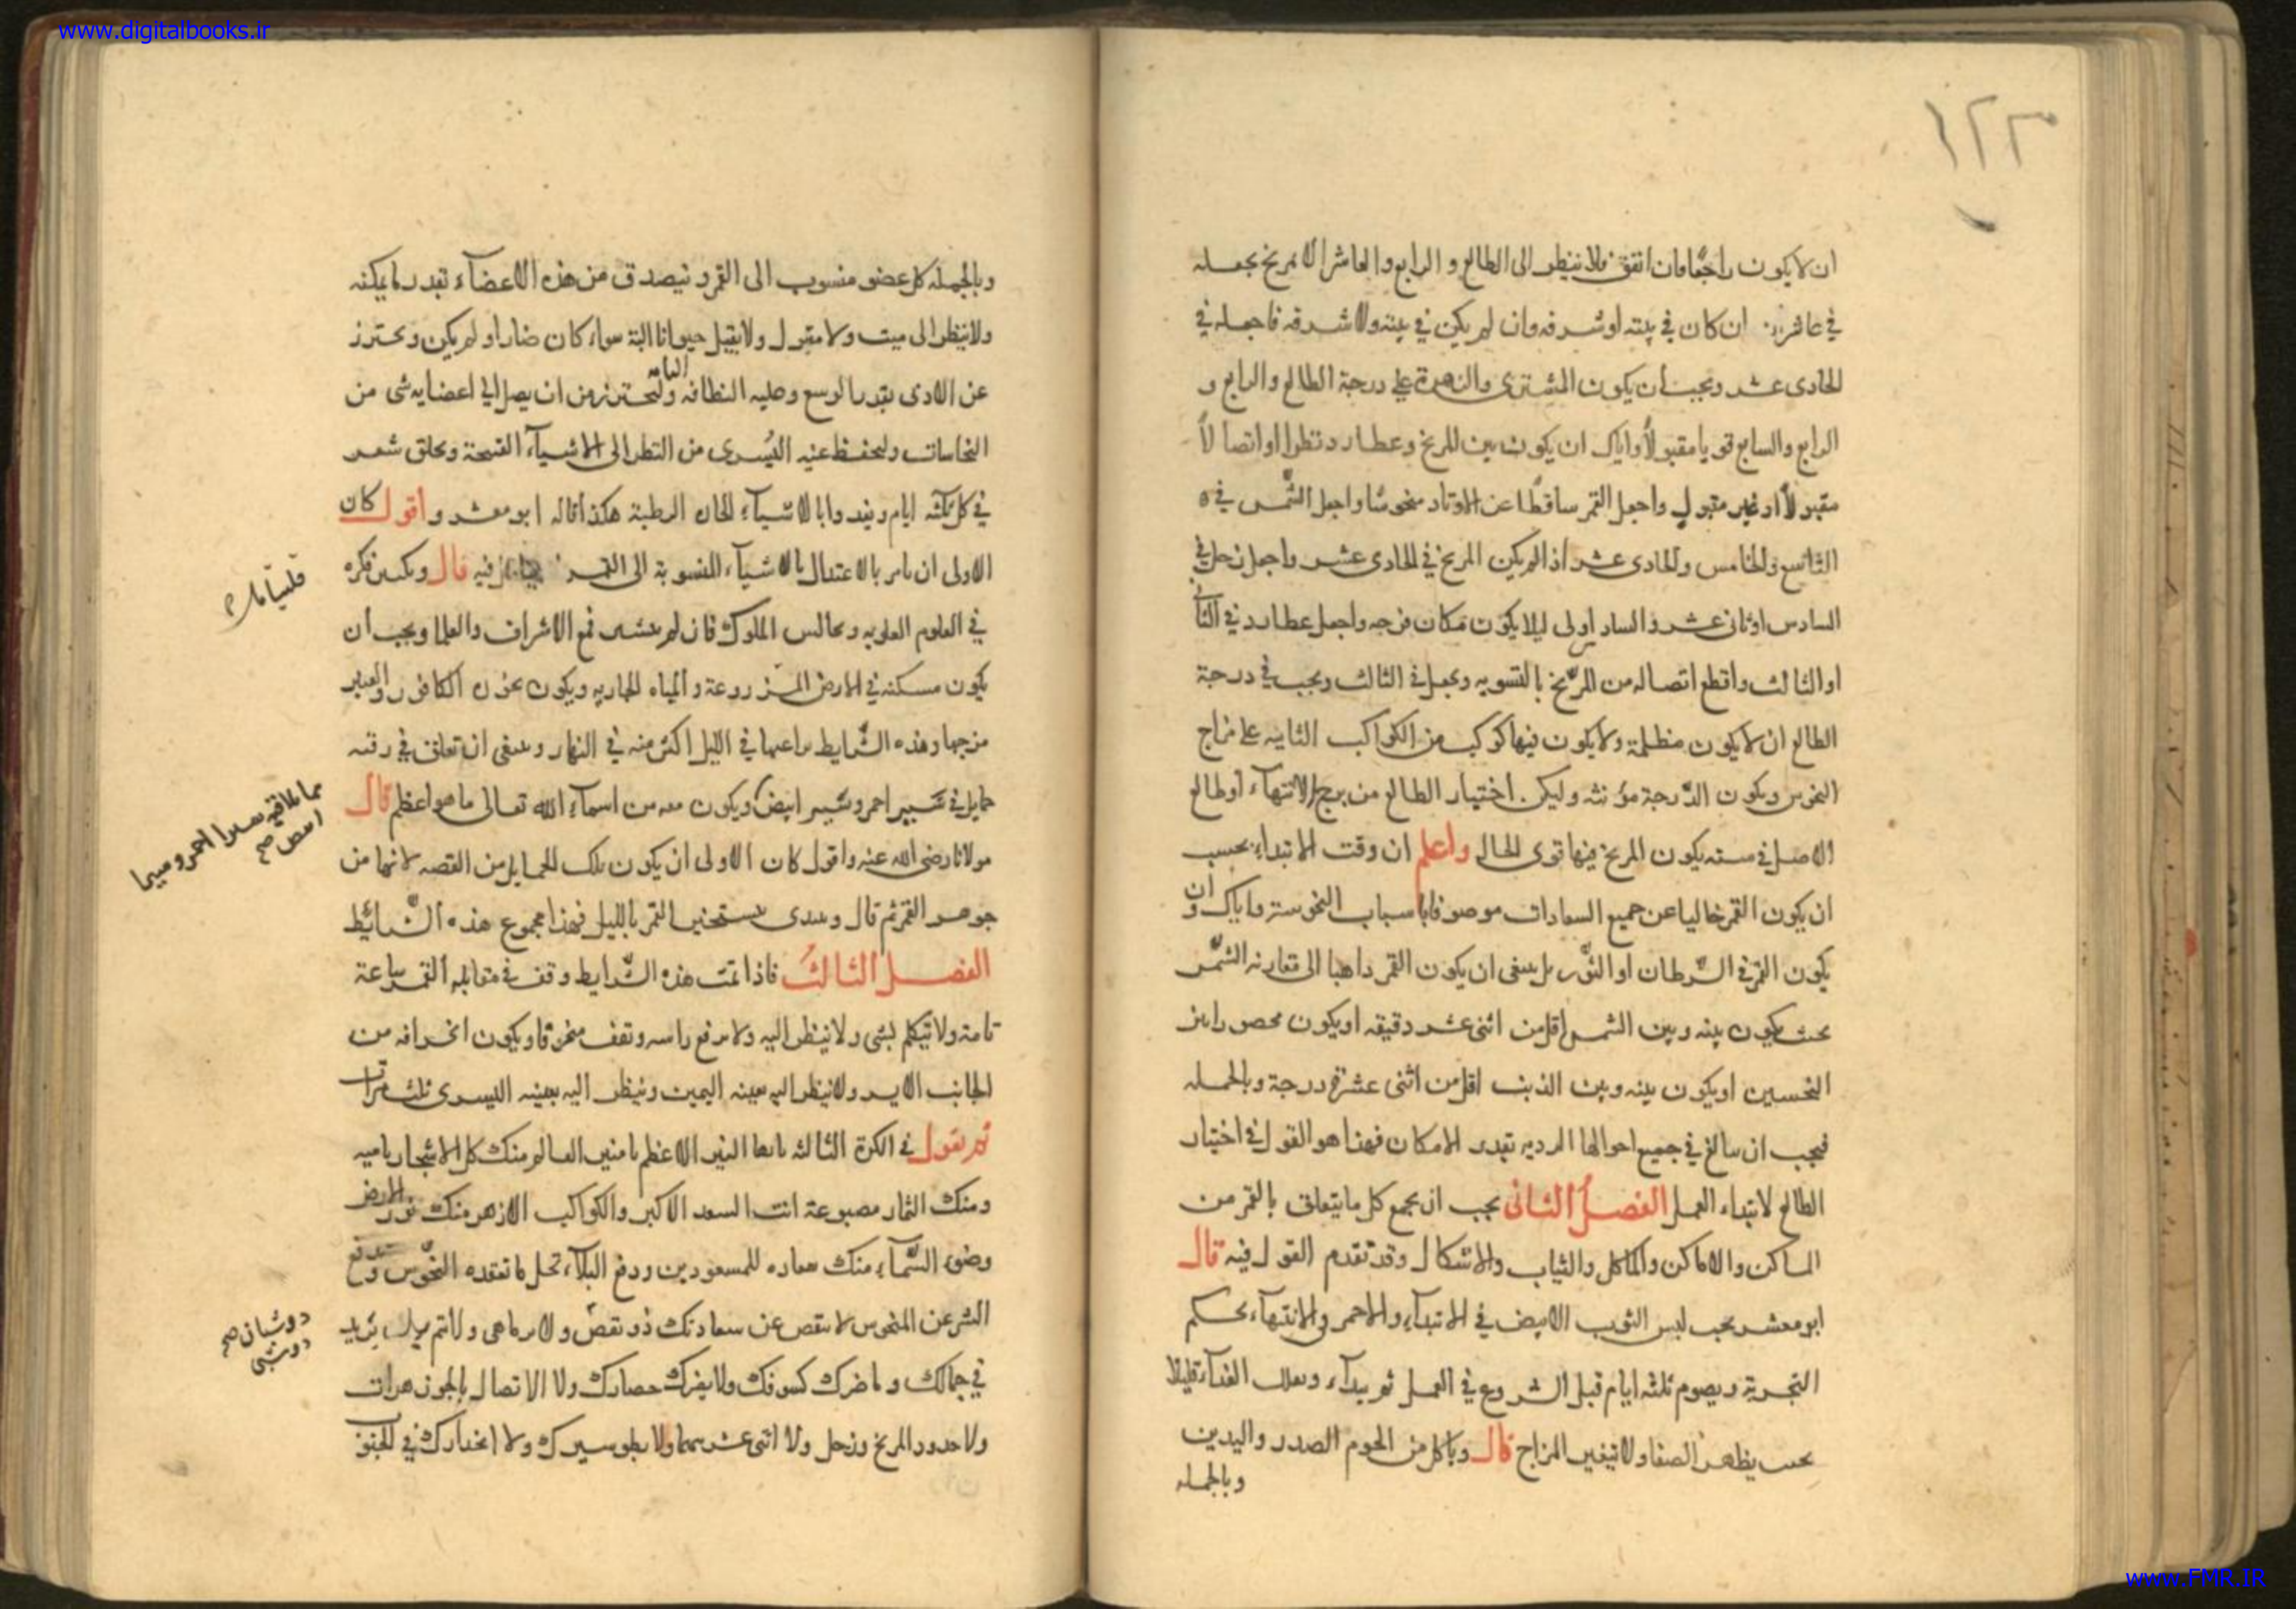 www.digitalbooks.ir
١٢٣
ان لا يكون راجعا فان اتفق فلا ينظر الى الطالع و الرابع و العاشر الا المريخ يجعله
في عاشره ان كان في بيته او شرفه وان لم يكن في بيته ولا شرفه فاجعله في
الحادى عشر ويجب ان يكون المشترى والزهرة على درجة الطالع والرابع و
الرابع والسابع قويا مقبولاً واياك ان يكون بين المريخ وعطارد نظرا او اتصالاً
مقبولاً او غير مقبول واجعل القمر ساقطا عن الاوتاد منحوسا واجعل الشمس في
التاسع والخامس والحادى عشر اذا لم يكن المريخ في الحادى عشر واجعل زحل في
السادس او ثانى عشر والسادس اولى ليلا يكون مكان فرجه واجعل عطارد في الثانى
او الثالث واقطع اتصاله من المريخ بالتسويه ويجعل في الثالث ويجب في درجة
الطالع ان لا يكون مظلمة ولا يكون فيها كوكب من الكواكب الثابته على مزاج
النحوس ويكون الدرجة مؤنثه وليكن اختيار الطالع من برج الانتهآء او طالع
الاصل في سنه يكون المريخ فيها قوى الحال واعلم ان وقت الابتداء بحسب
ان يكون القمر خاليا عن جميع السعادات موصوفا باسباب النحوسة واياك وان
يكون القمر في السرطان او الثور بل ينبغى ان يكون القمر ذاهبا الى مقارنه الشمس
بحيث يكون بينه وبين الشمس اقل من اثنى عشر دقيقه او يكون محصورا بين
النحسين او يكون بينه وبين الذنب اقل من اثنى عشرة درجة وبالجمله
فيجب ان يبالغ في جميع احوالها الرديه بقدر الامكان فهذا هو القول في اختيار
الطالع لابتداء العمل الفصل الثانى يجب ان يجمع كل ما يتعلق بالقمر من
المساكن والاماكن والماكل والثياب والاشكال وقد تقدم القول فيه قال
ابو معشر يجب لبس الثوب الابيض في الابتدآء والاحمر والانتهآء بحكم
التجربة ويصوم ثلثه ايام قبل الشروع في العمل ثم يبدآء ويقلل الغذآء قليلا
بحيث يظهر الصفا ولا يتغير المزاج قال وياكل من اللحوم الصدر واليدين
وبالجمله
وبالجمله كل عضو منسوب الى القمر ويتصدق من هذه الاعضآء بقدر ما يمكنه
ولا ينظر الى ميت ولا مقتول ولا يقتل حيوانا البتة سواء كان ضارا او لم يكن ويحترز
عن الاذى بقدر الوسع وعليه النظافه التامه وليحترز من ان يصل الى اعضايه شى من
النجاسات وليحفظ عينه اليسرى من النظر الى الاشيآء القبيحة ويحلق شعره
في كل ثلثة ايام ويغدوا بالاشيآء الحارة الرطبة هكذا قاله ابو معشر واقول كان
الاولى ان يامر بالاعتدال بالاشيآء المنسوبة الى القمر فيه قال ويكثر فكره
فليتامل
في العلوم العلويه ومجالس الملوك فان لم يتيسر فمع الاشراف والعلما ويجب ان
يكون مسكنه في الارض المزروعة والمياه الجاريه ويكون بخوره الكافور والعنبر
مزجها وهذه الشرايط يراعيها في الليل اكثر منه في النهار وينبغى ان تعلق في رقبته
حمايل في سير احمر وسير ابيض ويكون معه من اسمآء الله تعالى ما هو اعظم قال
مولانا رضى الله عنه واقول كان الاولى ان يكون تلك الحمايل من الفضه لانها من
جوهر القمر ثم قال ويبتدى بتسخير القمر بالليل فهذا مجموع هذه الشرائيط
الفصل الثالث فاذا تمت هذه الشرايط وقف في مقابلة القمر ساعة
تامة ولا يتكلم بشى ولا ينظر اليه ولا يرفع راسه ويقف منحرفا ويكون انحرافه من
الجانب الايسر ولا ينظر اليه بعينه اليمين وينظر اليه بعينه اليسرى ثلث مرات
ثم يقول في الكرة الثالثه يا ايها النير الاعظم يا منير العالم منك كل الاشجار ناميه
ومنك الثمار مصبوغة انت السعد الاكبر والكواكب الازهر منك نور الارض
وضوء السمآء منك سعاده للمسعودين ودفع البلآء تحل ما تعقده النحوس وتدفع
الشر عن المنحوس لا ينقص عن سعادتك ذو نقص ولا يرماهى ولا تم يزيد
دوشان صح
في جمالك وما ضرك كسوفك ولا يضرك حصارك ولا الاتصال بالجوزهرات
ولا حدود المريخ وزحل ولا اثنى عشر سهما ولا بطو سيرك ولا انحدارك في الجنوب
www.FMR.IR